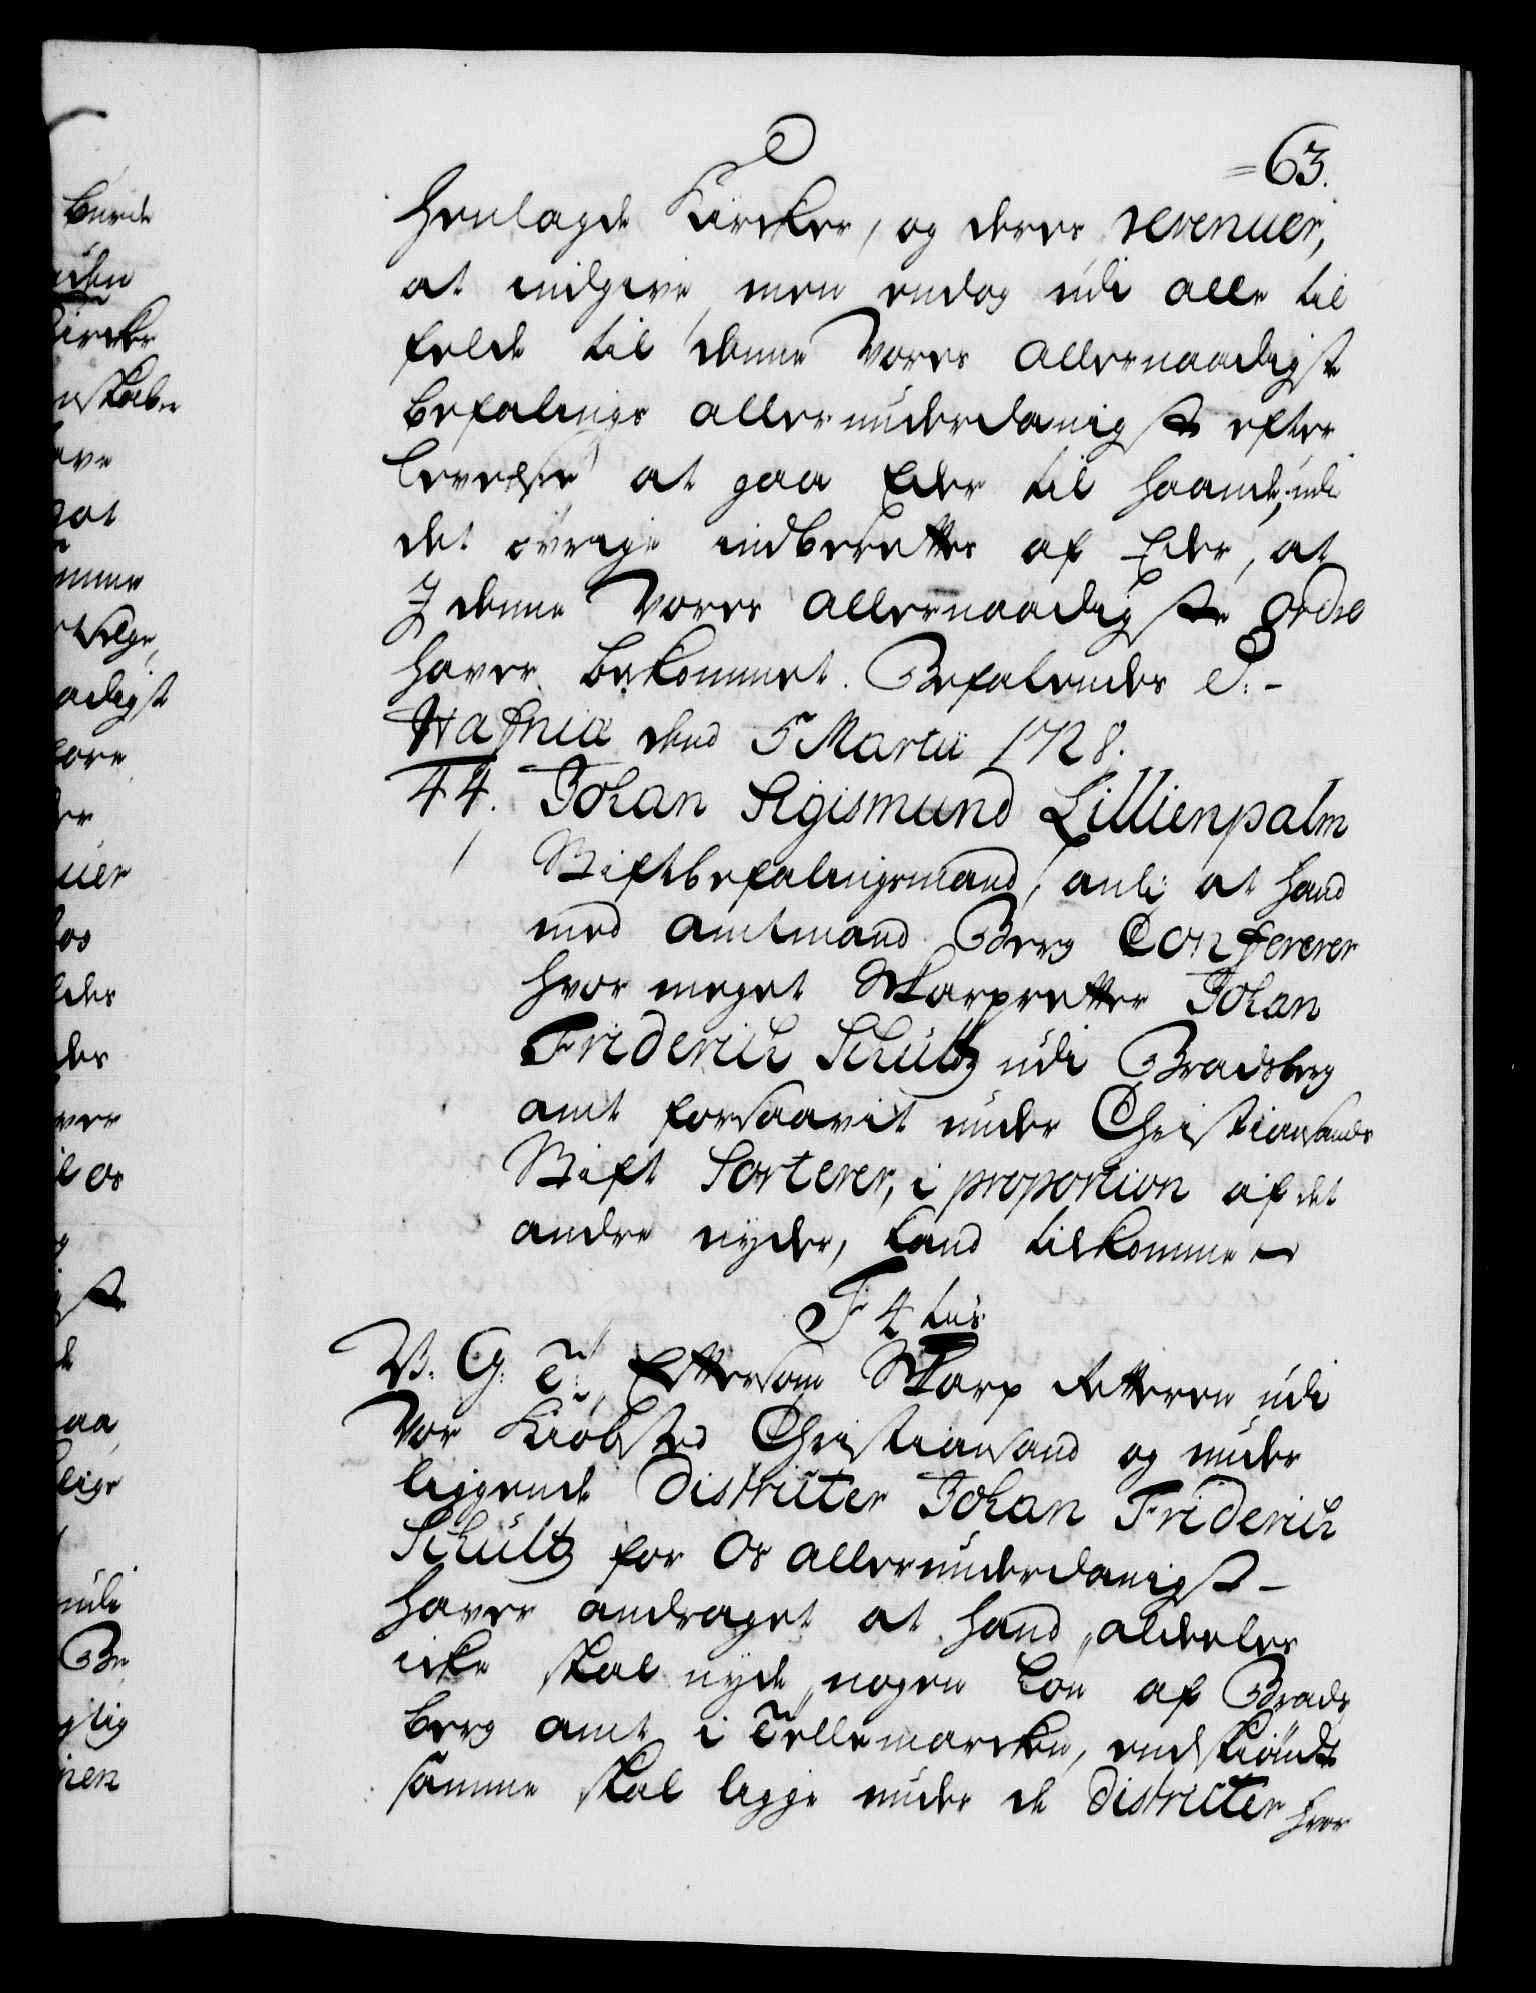 63.
henlagde Kircker, og deres revenuer,
at indgive, men endog udi alle til
felde til denne Vores allernaadigste
befalings allerunderdanigste efter
levelse at gaa Eder til haande, udi
det øvrige indberettes af Eder, at
I denne Vores allernaadigste ordre
haver bekommet. Befalendes &:-
Hafniæ dend 5 Martii 1728.
44. Johan Sigismund Lillienpalm
Stiftbefalingsmand, anl: at hand
med amtmand Berg Confererer
hvor meget Skarpretter Johan
Friderich Schultz udi Bradsberg
amt forsaavit under Christiansands
Stift Sorterer, i proportion af det
andre nyder, kand tilkomme
F 4 tus
V. G. T. Eftersom Skarp Retteren udi
Vor Kiøbsted Christiansand og under
liggende Districter Johan Friderich
Schultz for Os allerunderdanigst
haver andraget at hand aldeeles
icke skal nyde nogen Løn af Brads
berg amt i Tellemarcken, endskiøndt
samme skal ligge under de Districter hvor
burde
uden
Kircker
nskaber
ave
got
adigst
fore
uer
os
des
ver
il os
aa
lige
udi
Be
gtig
nen